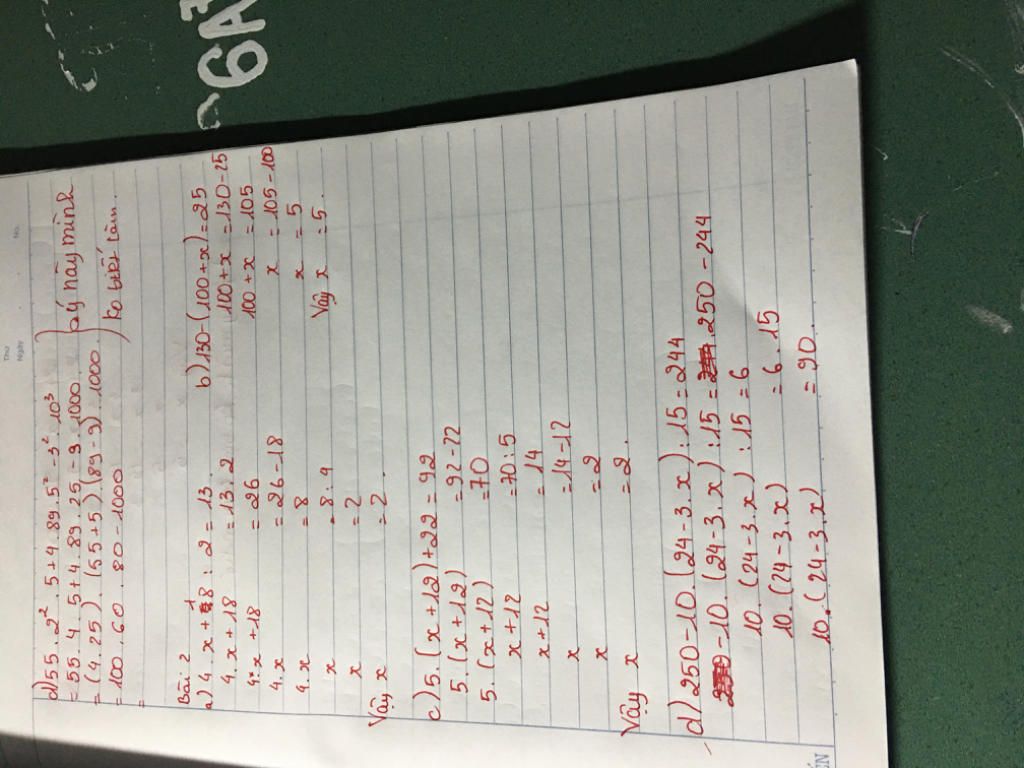 d) 55 . 2² . 5 + 4 . 89 . 5² - 3² . 10³
= 55 . 4 . 5 + 4 . 89 . 25 - 9 . 1000.
= (4 . 25) . (55 + 5) . (89 - 9) . 1000.
= 100 . 60 . 80 - 1000
=
ý này mình
ko biết làm.
Bài: 2
a) 4 . x + 18 : 2 = 13.
4 . x + 18 = 13 . 2
4 . x + 18 = 26
4 . x = 26 - 18
4 . x = 8
x = 8 : 4
x = 2
Vậy x = 2.
b) 130 - (100 + x) = 25
100 + x = 130 - 25
100 + x = 105
x = 105 - 100
x = 5
Vậy x = 5.
c) 5 . (x + 12) + 22 = 92
5 . (x + 12) = 92 - 22
5 . (x + 12) = 70
x + 12 = 70 : 5
x + 12 = 14
x = 14 - 12
x = 2
Vậy x = 2.
d) 250 - 10 . (24 - 3 . x) : 15 = 244
10 . (24 - 3 . x) : 15 = 250 - 244
10 . (24 - 3 . x) : 15 = 6
10 . (24 - 3 . x) = 6 . 15
10 . (24 - 3 . x) = 90
Thứ
Ngày
No.
6A7